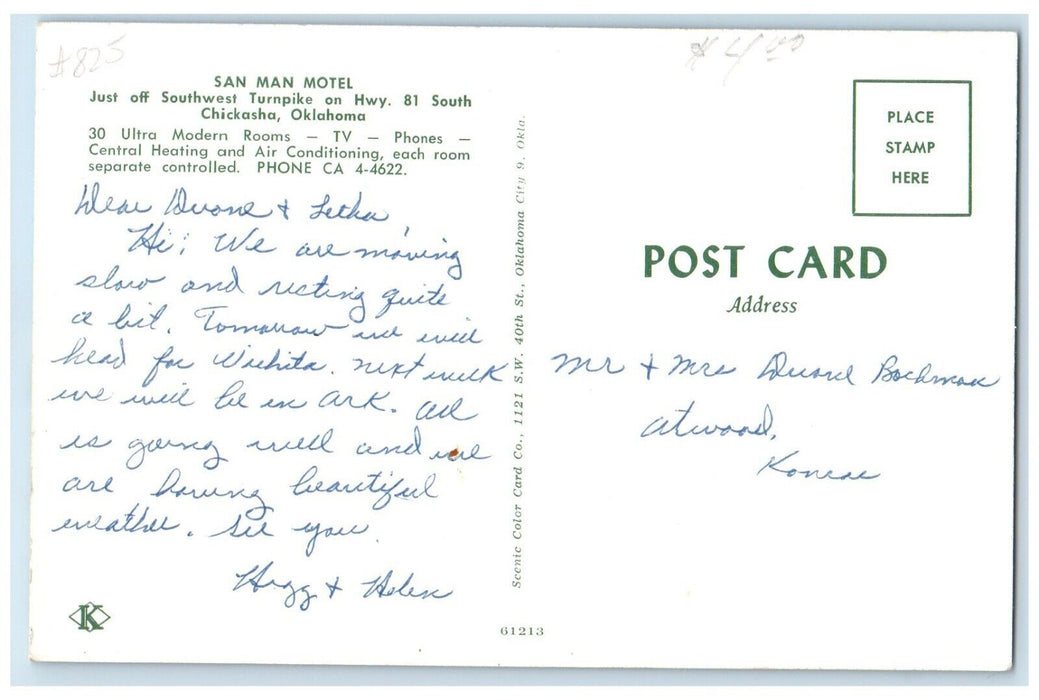 #825
$4.00
SAN MAN MOTEL
Just off Southwest Turnpike on Hwy. 81 South
Chickasha, Oklahoma
30 Ultra Modern Rooms — TV — Phones —
Central Heating and Air Conditioning, each room
separate controlled. PHONE CA 4-4622.
Dear Duane & Letha,
Hi; We are moving
slow and resting quite
a bit. Tomorrow we will
head for Wichita. next week
we will be in Ark. all
is going well and we
are having beautiful
weather. See you.
& Helen
K
Scenic Color Card Co., 1121 S.W. 40th St., Oklahoma City 9, Okla.
61213
PLACE
STAMP
HERE
POST CARD
Address
Mr & Mrs Duane
Atwood,
Kansas